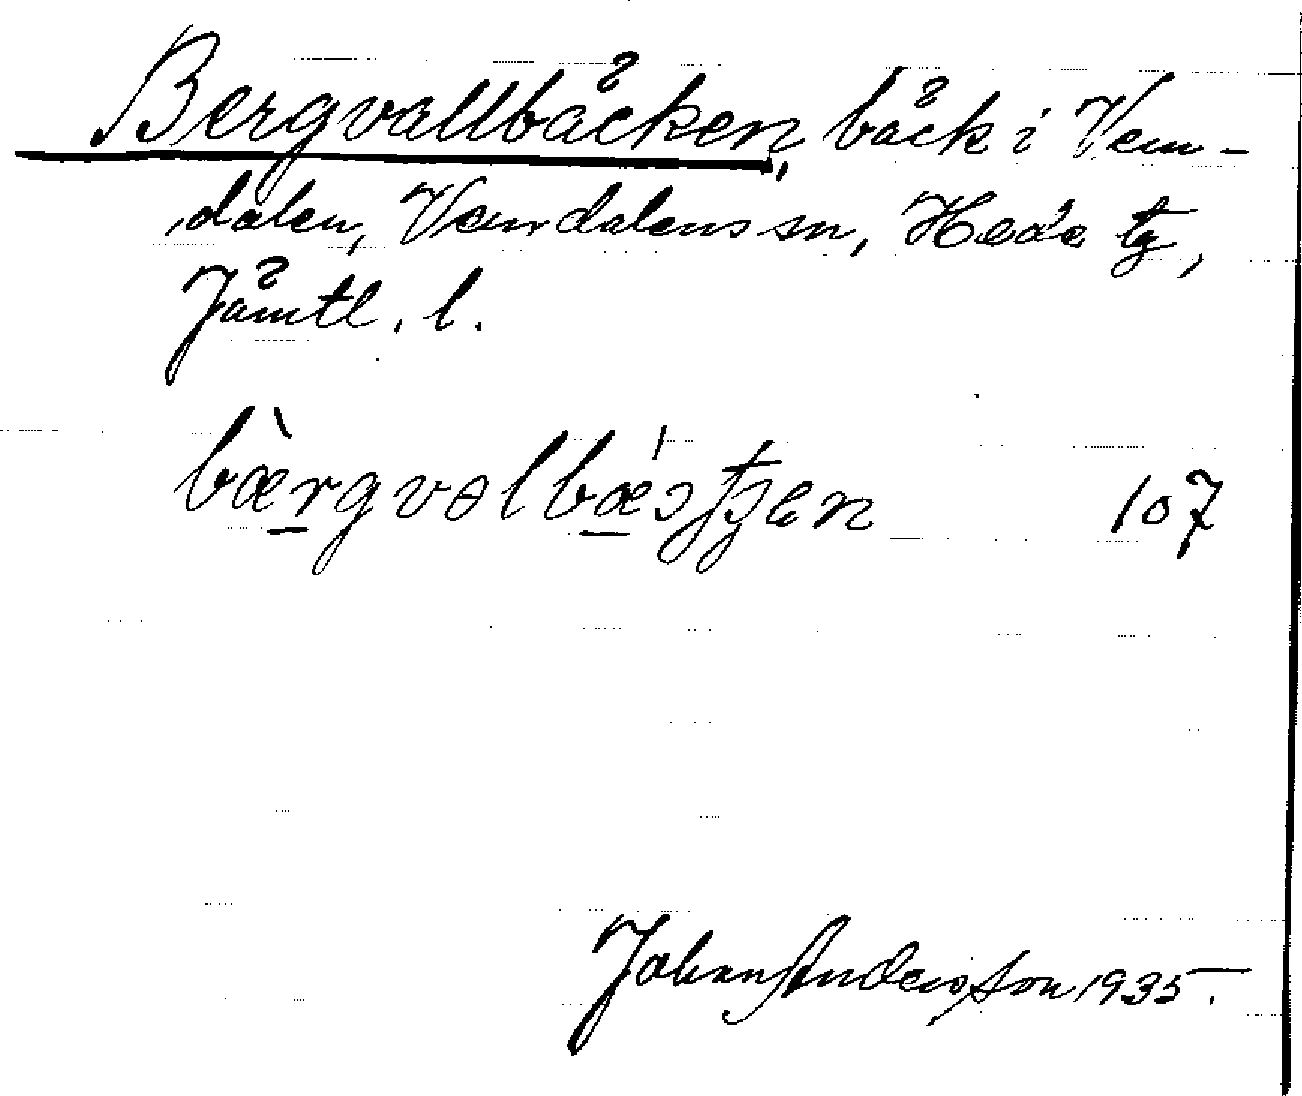 Bergvallbäcken, bäck i Vem-
dalen, Vemdalens sn, Hede tg,
Jämtl. l.
107
Johan Andersson 1935.